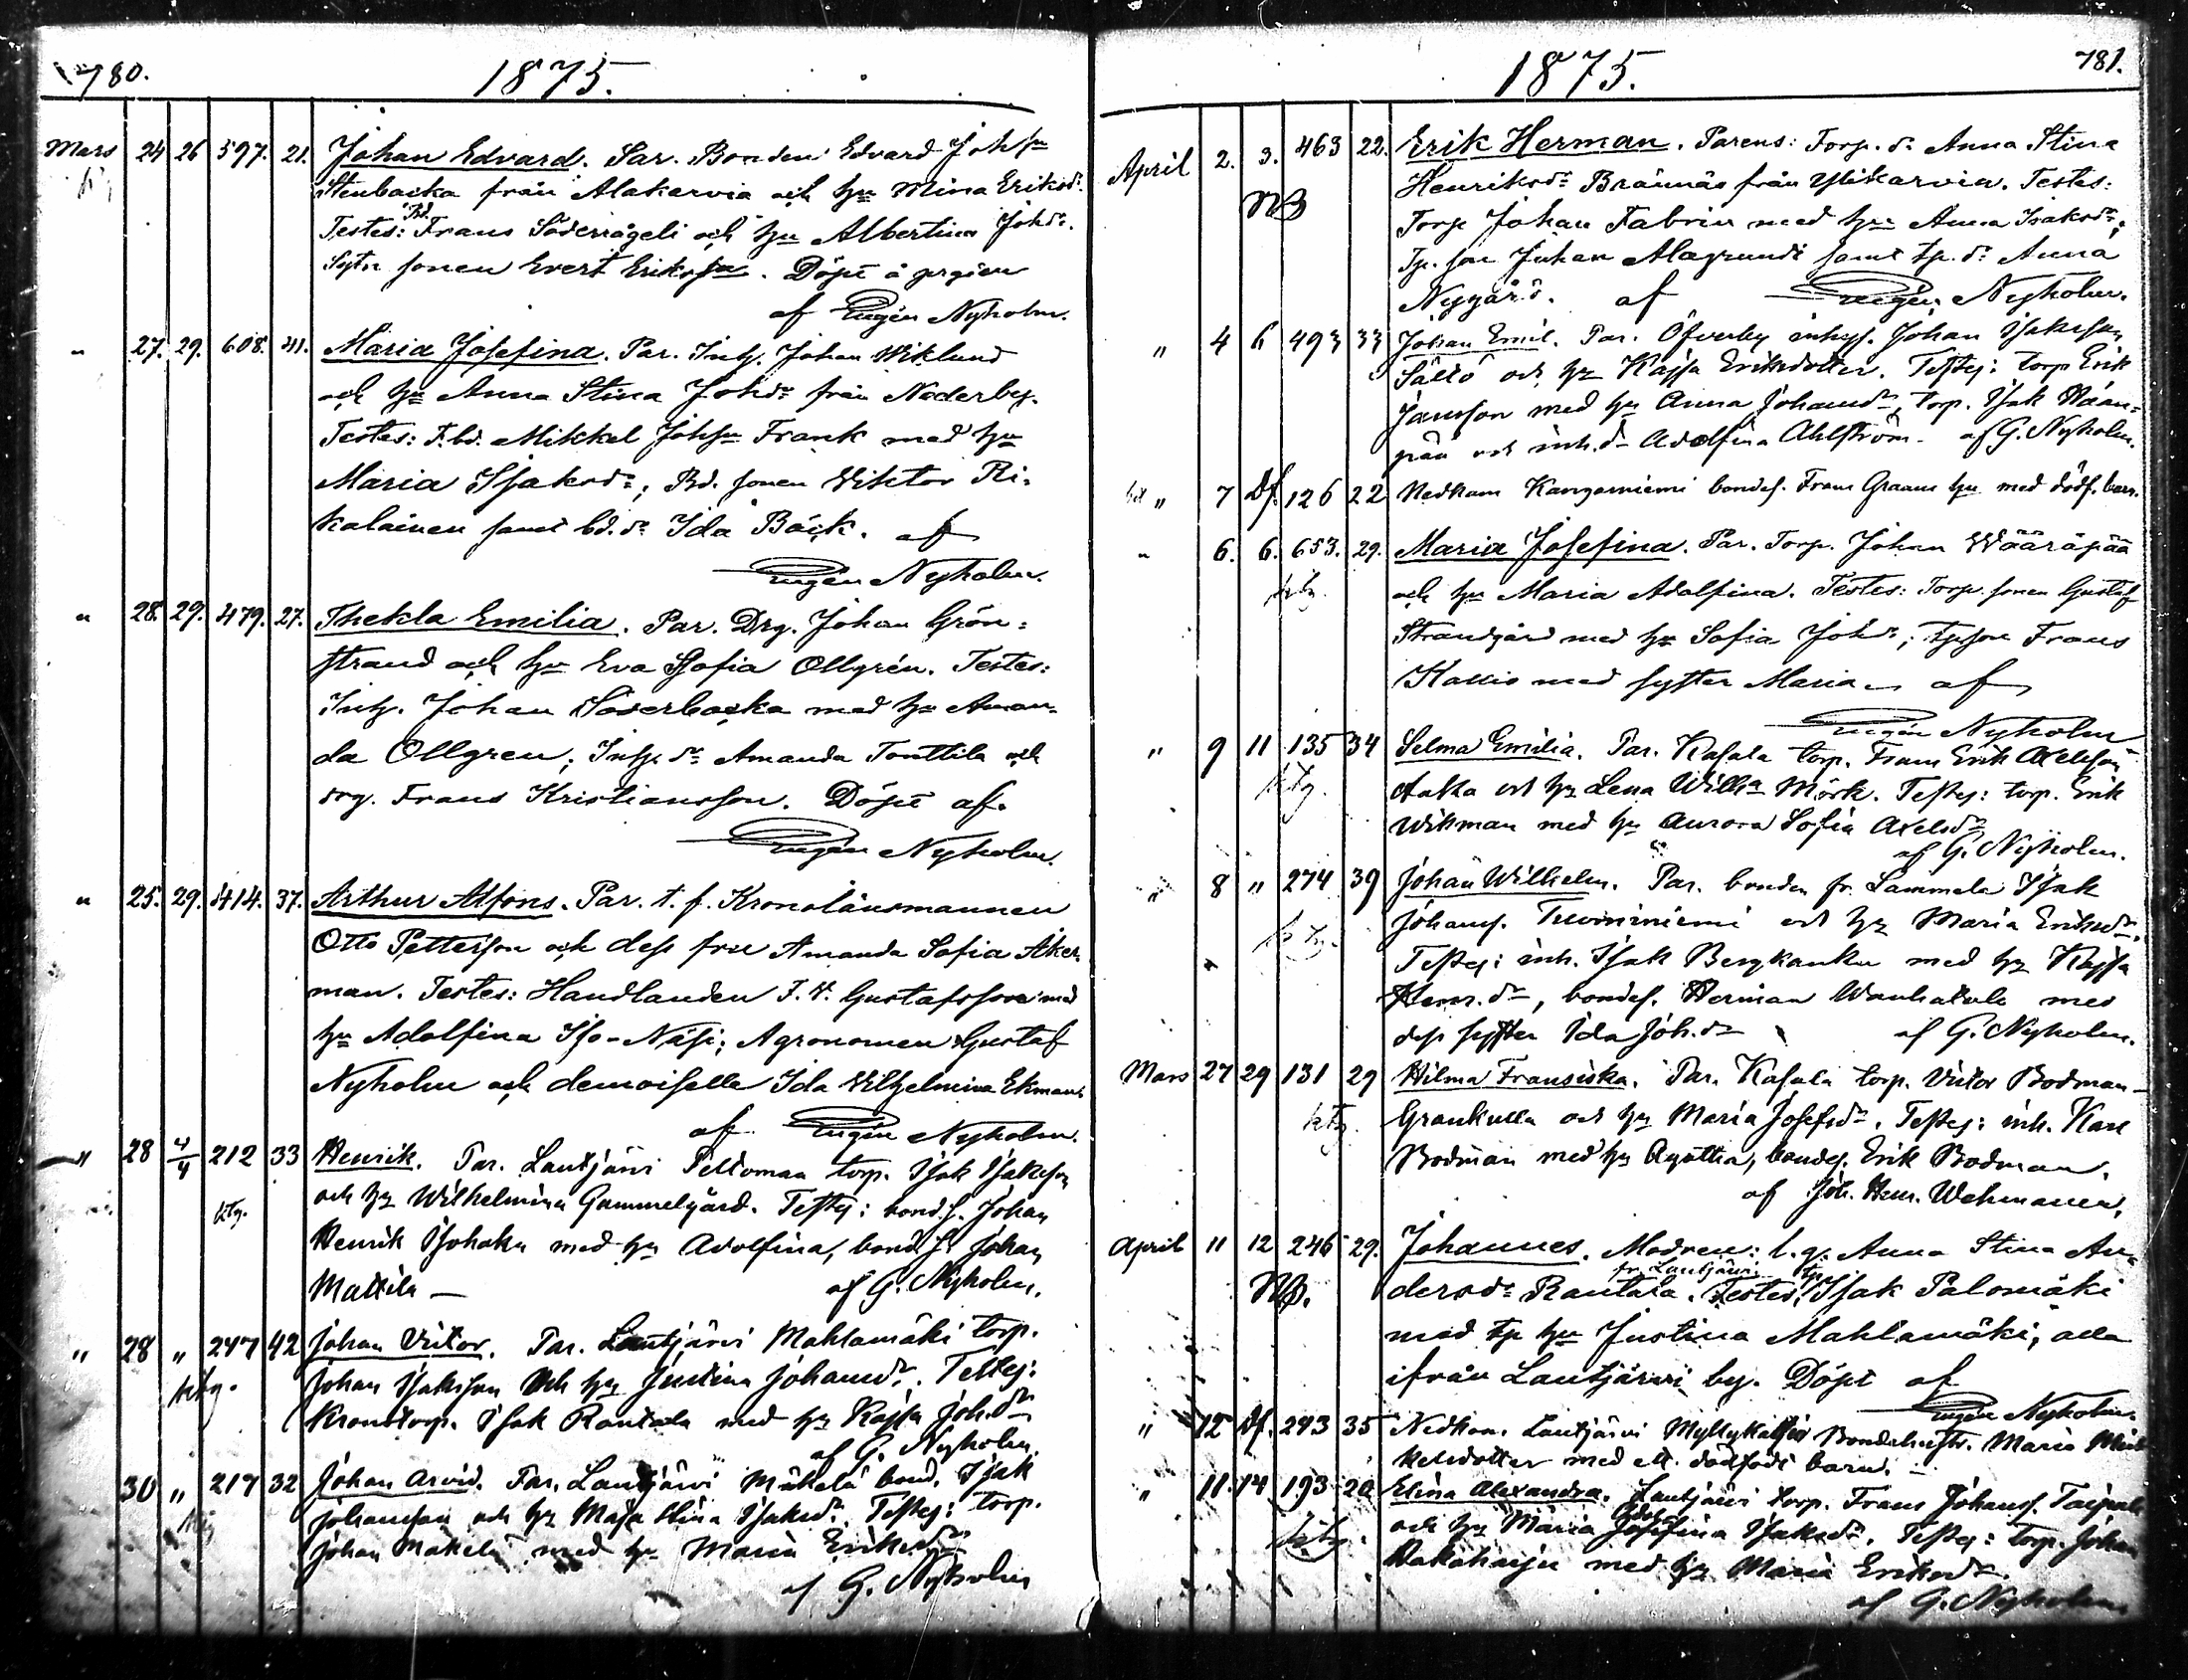 780.
1875.
Mars 24 26 597. 21. Johan Edvard. Par. Bonden Edvard Johss
Stenbacka från Alakarvia och hu Mina Eriksdr.
Testes: Bd. Frans Söderrågeli och hu Albertina Johdr.
Sytn sonen Evert Eriksson. Döpt å prgien
af Eugén Nyholm.
" 27. 29. 608. 41. Maria Josefina. Par. Inh. Johan Wiklund
och hu Anna Stina Johdr från Nederby.
Testes: F.bd. Mikkel Johss Frank med hu
Maria Isaksdr; Bd. sonen Viktor Ri-
kalainen samt bd. dr Ida Bäck. af
Eugén Nyholm.
" 28. 29. 479. 27. Thekla Emilia. Par. Drg. Johan Grön-
strand och hu Eva Sofia Ollgrén. Testes:
Inh. Johan Söderbacka med hu Aman-
da Ollgren; Inh. dr Amanda Tonttila och
drg. Frans Kristiansson. Döpt af.
Eugén Nyholm.
" 25. 29. 414. 37. Arthur Alfons. Par. t. f. Kronolänsmannen
Otto Petterson och dess fru Amanda Sofia Åker-
man. Testes: Handlanden F. V. Gustafsson med
hu Adolfina Iso-Näsi; Agronomen Gustaf
Nyholm och demoiselle Ida Vilhelmina Ekman.
af Eugén Nyholm.
" 28 4/4 212 33 Henrik. Par. Lautjärvi Peltoman torp. Isak Isaksson
ktg. och hu Wilhelmina Gammelgård. Testes: bond.s. Johan
Henrik Isohaka med hu Adolfina, bond.s. Johan
Mattila — af G. Nyholm.
" 28 " 247 42 Johan Victor. Par. Lautjärvi Mahlamäki torp.
ktg. Johan Isaksson och hu Justina Johansdr. Testes:
Kronotorp. Isak Rantala med hu Kajsa Joh.dr
af G. Nyholm.
30 " 217 32 Johan Arvid. Par. Lautjärvi Mäkelä bond. Isak
Johansson och hu Maja Stina Isaksdr. Testes: torp.
Johan Mäkelä med hu Maria Eriksdr
af G. Nyholm
1875.
781.
April 2. 3. 463 22. Erik Herman. Parens: Torp. dr Anna Stina
NB Henriksdr Brännäs från Ylikarvia. Testes:
Torp Johan Fabrin med hu Anna Isaksdr;
Tp. son Johan Alagrund samt tp. dr Anna
Nygård. af Eugén Nyholm.
" 4 6 493 33 Johan Emil. Par. Öfverby inhys. Johan Isaksson
Sältö och hu Kajsa Eriksdotter. Testes: torp Erik
Jansson med hu Anna Johansdr, torp. Isak Haan-
pää och inh. dr Adolfina Ahlström. af G. Nyholm.
" 7 Df. 126 22 Nedkom Kangasniemi bondes. Frans Graans hu med dödf. barn.
" 6. 6. 653. 29. Maria Josefina. Par. Torp. Johan Wääräpää
ktg. och hu Maria Adolfina. Testes: Torp. sonen Gustaf
Strandgård med hu Sofia Johdr; tp son Frans
Kallio med syster Maria. af
Eugén Nyholm
" 9 11 135 34 Selma Emilia. Par. Kasala torp. Frans Erik Axelsson
ktg. Aalla och hu Lena Willha Mörk. Testes: torp. Erik
Wikman med hu Aurora Sofia Axelsdr
af G. Nyholm.
" 8 " 274 39 Johan Wilhelm. Par. bonden fr. Lammela Isak
ktg. Johans. Tuominiemi och hu Maria Eriksdr.
Testes: inh. Isak Bergkanka med hu Kajsa
Henr.dr, bondes. Herman Wanhatalo med
dess syster Ida Joh.dr af G. Nyholm.
Mars 27 29 131 29 Hilma Fransiska. Par. Kasala torp. Victor Bodman-
ktg. Grankulla och hu Maria Josefsdr. Testes: inh. Karl
Bodman med hu Agatha, bondes. Erik Bodman.
af Joh. Henr. Wehmanen.
April 11 12 246 29. Johannes. Modren: l. q. Anna Stina An-
fr. Lautjärvi tp.
NB. dersdr Rantala. Testes: Isak Palomäki
med tp hu Justina Mahlamäki, alla
ifrån Lautjärvi by. Döpt af
Eugén Nyholm.
" 12 Df. 243 35 Nedkom. Lautjärvi Myllykallio Bondehustr. Maria Mick-
kelsdotter med ett dödfödt barn.
" 11. 14 193 20 Elina Alexandra. Lautjärvi torp. Frans Johanss. Taipale
ktg. och hu Maria Josefina Isaksdr. Testes: torp. Johan
Hakaharju med hu Maria Eriksdr.
af G. Nyholm.